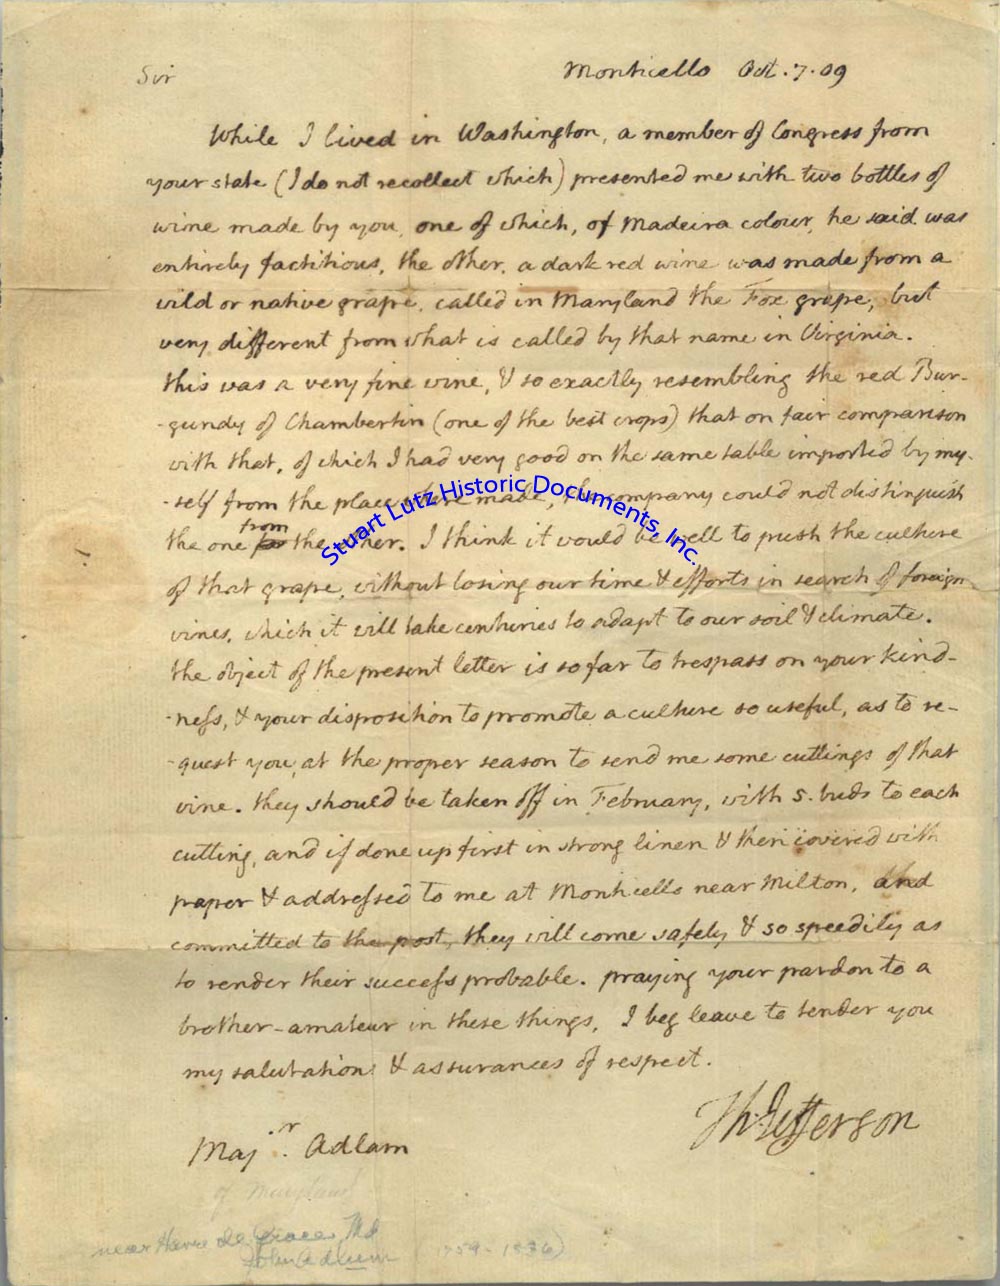 Sir
Monticello Oct. 7. 09
While I lived in Washington, a member of Congress from
your state (I do not recollect which) presented me with two bottles of
wine made by you, one of which, of Madeira colour, he said was
entirely factitious, the other, a dark red wine was made from a
wild or native grape, called in Maryland the Fox grape, but
very different from what is called by that name in Virginia.
this was a very fine wine, & so exactly resembling the red Bur-
-gundy of Chambertin (one of the best crops) that on fair comparison
with that, of which I had very good on the same table imported by my-
-self from the place where made, the company could not distinguish
the one from the other. I think it would be well to push the culture
of that grape, without losing our time & efforts in search of foreign
vines, which it will take centuries to adapt to our soil & climate.
the object of the present letter is so far to trespass on your kind-
-ness, & your disposition to promote a culture so useful, as to re-
-quest you, at the proper season to send me some cuttings of that
vine. they should be taken off in February, with 5. buds to each
cutting, and if done up first in strong linen & then covered with
paper & addressed to me at Monticello near Milton, and
committed to the post, they will come safely & so speedily as
to render their success probable. praying your pardon to a
brother-amateur in these things, I beg leave to tender you
my salutations & assurances of respect.
Th Jefferson
Maj.r Adlam
of Maryland
near Havre de Grace, Md
John Adlum 1759-1836)
Stuart Lutz Historic Documents, Inc.